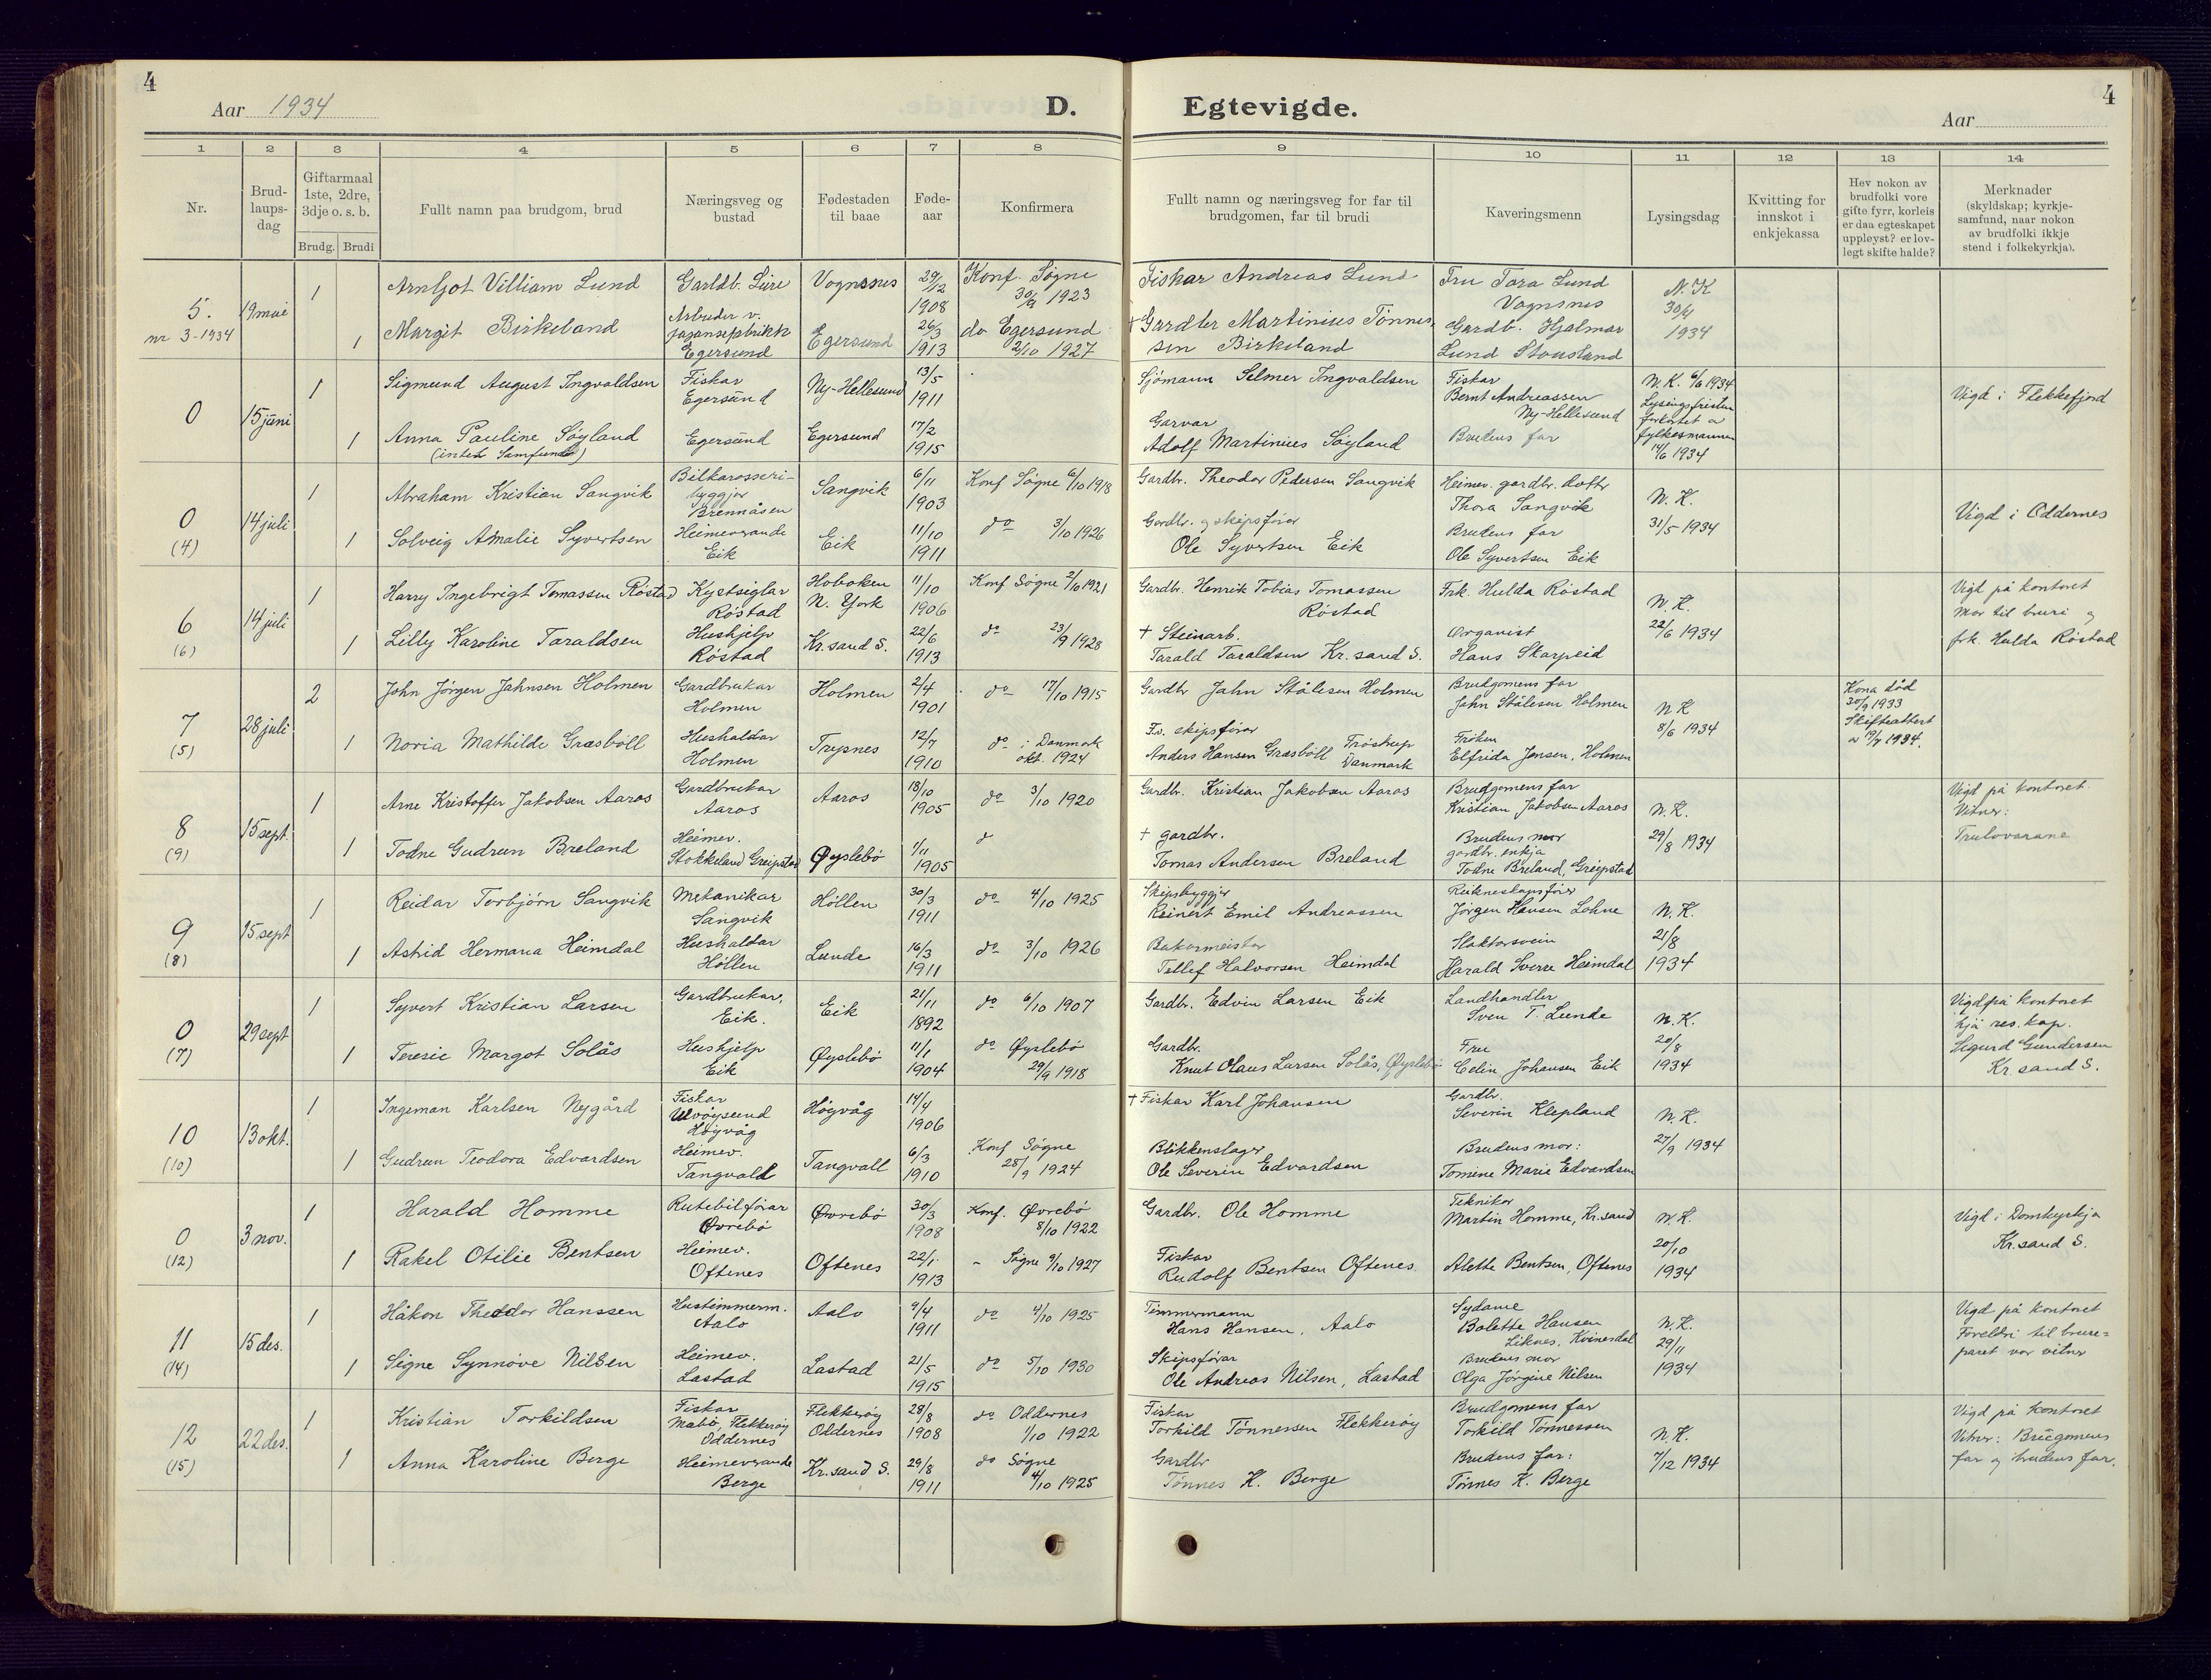 4
Aar 1934
D. Egtevigde.
Aar
4
1 2 3 4 5 6 7 8 9 10 11 12 13 14
Nr.
Brud-
laups-
dag
Giftarmaal
1ste, 2dre,
3dje o. s. b.
Brudg. Brudi
Fullt namn paa brudgom, brud
Næringsveg og
bustad
Fødestaden
til baae
Føde-
aar
Konfirmera
Fullt namn og næringsveg for far til
brudgomen, far til brudi
Kaveringsmenn
Lysingsdag
Kvitting for
innskot i
enkjekassa
Hev nokon av
brudfolki vore
gifte fyrr, korleis
er daa egteskapet
uppleyst? er lov-
legt skifte halde?
Merknader
(skyldskap; kyrkje-
samfund, naar nokon
av brudfolki ikkje
stend i folkekyrkja).
5.
nr 3-1934
19 mai
1
Arnljot Villiam Lund
Gardb.
Vognsnes
29/12
1908
Konf. Søgne
30/9 1923
Fiskar Andreas Lund
Fru Tora Lund
Vognsnes
N. K
30/4
1934
1
Margit Birkeland
Arbeider v.
Egersund
Egersund
26/3
1913
do Egersund
2/10 1927
† Gardbr Martinius Tønnes-
sen Birkeland
Gardb. Hjalmar
Lund Stousland
0
15 juni
1
Sigmund August Ingvaldsen
Fiskar
Egersund
Ny-Hellesund
13/5
1911
Sjömann Selmer Ingvaldsen
Fiskar
Bernt Andreassen
Ny-Hellesund
N. K. 6/6 1934
Lysingsfristen
forkortet av
fylkesmannen
14/6 1934
Vigd i Flekkefjord
1
Anna Pauline Søyland
(intet Samfund)
Egersund
Egersund
17/2
1915
Garvar
Adolf Martinius Søyland
Brudens far
0
(4)
14 juli
1
Abraham Kristian Sangvik
Bilkarosseri-
byggjer
Brennåsen
Sangvik
6/11
1903
Konf Søgne 6/10 1918
Gardbr. Theodor Pedersen Sangvik
Heimev. gardbr. dottr
Thora Sangvik
N. K.
31/5 1934
Vigd i Oddernes
1
Solveig Amalie Syvertsen
Heimeverande
Eik
Eik
11/10
1911
do 3/10 1926
Gardbr. og skipsförar
Ole Syvertsen Eik
Brudens far
Ole Syvertsen Eik
6
(6)
14 juli
1
Harry Ingebrigt Tomassen Röstad
Kystsiglar
Röstad
Hoboken
N. York
11/10
1906
Konf Søgne 2/10 1921
Gardbr. Henrik Tobias Tomassen
Röstad
Frk. Hulda Röstad
N. K.
22/6 1934
Vigd på kontoret
Mor til bruri og
frk. Hulda Röstad
1
Lilly Karoline Taraldsen
Hushjelp
Röstad
Kr.sand S.
22/6
1913
do 23/9 1928
† Steinarb.
Tarald Taraldsen Kr.sand S.
Organist
Hans Skarpeid
7
(5)
28 juli
2
John Jörgen Jahnsen Holmen
Gardbrukar
Holmen
Holmen
2/4
1901
do 17/10 1915
Gardbr Jahn Ståleson Holmen
Brudgomens far
Jahn Stålesen Holmen
N K
8/6 1934
Kona död
30/9 1933
Skifteattest
av 19/7 1934.
1
Noria Mathilde Græsböll
Hushaldar
Holmen
Trysnes
12/7
1910
do i Danmark
okt. 1924
F.v. skipsförar
Anders Hansen Græsböll Tröstrup
Danmark
Fröken
Elfrida Jensen, Holmen
8
(9)
15 sept.
1
Arne Kristoffer Jakobsen Aaros
Gardbrukar
Aaros
Aaros
18/10
1905
do 3/10 1920
Gardbr. Kristian Jakobsen Aaros
Brudgomens far
Kristian Jakobsen Aaros
N. K.
29/8 1934
Vigd på kontoret.
Vitner:
Trulovarane
1
Todne Gudrun Breland
Heimev.
Stokkeland Greipstad
Øyslebö
1/11
1905
d
† gardbr.
Tomas Andersen Breland
Brudens mor
gardbr. enkja
Todne Breland, Greipstad
9
(8)
15 sept
1
Reidar Torbjörn Sangvik
Mekanikar
Sangvik
Höllen
30/3
1911
do 4/10 1925
Skipsbyggjer
Reinert Emil Andreassen
Rekneskapsförer
Jörgen Hansen Lohne
N. K.
21/8
1934
1
Astrid Hermana Heimdal
Hushaldar
Höllen
Lunde
16/3
1911
do 3/10 1926
Bakarmeister
Tellef Halvorsen Heimdal
Slaktarsvein
Harald Sverre Heimdal
0
(7)
29 sept
1
Syvert Kristian Larsen
Gardbrukar,
Eik.
Eik
21/11
1892
do 6/10 1907
Gardbr. Edvin Larsen Eik
Landhandler
Sven T. Lunde
N. K.
20/8
1934
Vigd på kontoret
hjå res. kap.
Sigurd Gundersen
Kr.sand S.
1
Teresie Margot Solås
Hushjelp
Eik
Øyslebö
11/1
1904
do Øyslebö
29/9 1918
Gardbr.
Knut Olaus Larsen Solås, Øyslebö
Fru
Celin Johansen Eik
10
(10)
13 okt.
1
Ingeman Karlsen Nygård
Fiskar
Ulvöysund
Högvåg
Högvåg
14/4
1906
† Fiskar Karl Johansen
Gardbr.
Severin Klepland
N. K.
27/9 1934
1
Gudrun Teodora Edvardsen
Heimev.
Tangvald
Tangvall
6/3
1910
Konf Søgne
28/9 1924
Blikkenslager
Ole Severin Edvardsen
Brudens mor:
Tomine Marie Edvardsen
0
(12)
3 nov.
1
Harald Homme
Rutebilförar
Øvrebö
Øvrebö
30/3
1908
Konf. Øvrebö
8/10 1922
Gardbr. Ole Homme
Teknikar
Martin Homme, Kr.sand
N. K.
20/10
1934
Vigd i Domkyrkja
Kr.sand S.
1
Rakel Otilie Bentsen
Heimev.
Oftenes
Oftenes
22/1
1913
- Søgne 9/10 1927
Fiskar
Rudolf Bentsen Oftenes.
Alette Bentsen, Oftenes
11
(14)
15 des.
1
Håkon Theodor Hanssen
Hustimmerm.
Aalo
Aalo
9/4
1911
do 4/10 1925
Timmermann
Hans Hansen, Aalo
Sydame
Bolette Hansen
Liknes, Kvinesdal
N. K.
29/11
1934
Vigd på kontoret
Foreldri til brure-
paret var vitner
1
Signe Synnöve Nilsen
Heimev.
Lastad
Lastad
21/5
1915
do 5/10 1930
Skipsförar
Ole Andreas Nilsen, Lastad
Brudens mor
Olga Jörgine Nilsen
12
(15)
22 des.
1
Kristian Torkildsen
Fiskar
Mæbö, Flekkeröy
Oddernes
Flekkeröy
Oddernes
28/8
1908
do Oddernes
1/10 1922
Fiskar
Torkild Tönnessen Flekkeröy
Brudgomens far
Torkild Tönnessen
N. K.
7/12 1934
Vigd på kontoret
Vitner: Brugomens
far og brudens far.
1
Anna Karoline Berge
Heimeverande
Berge
Kr.sand S.
29/8
1911
do Søgne
4/10 1925
Gardbr
Tönnes K. Berge
Brudens far:
Tönnes K. Berge